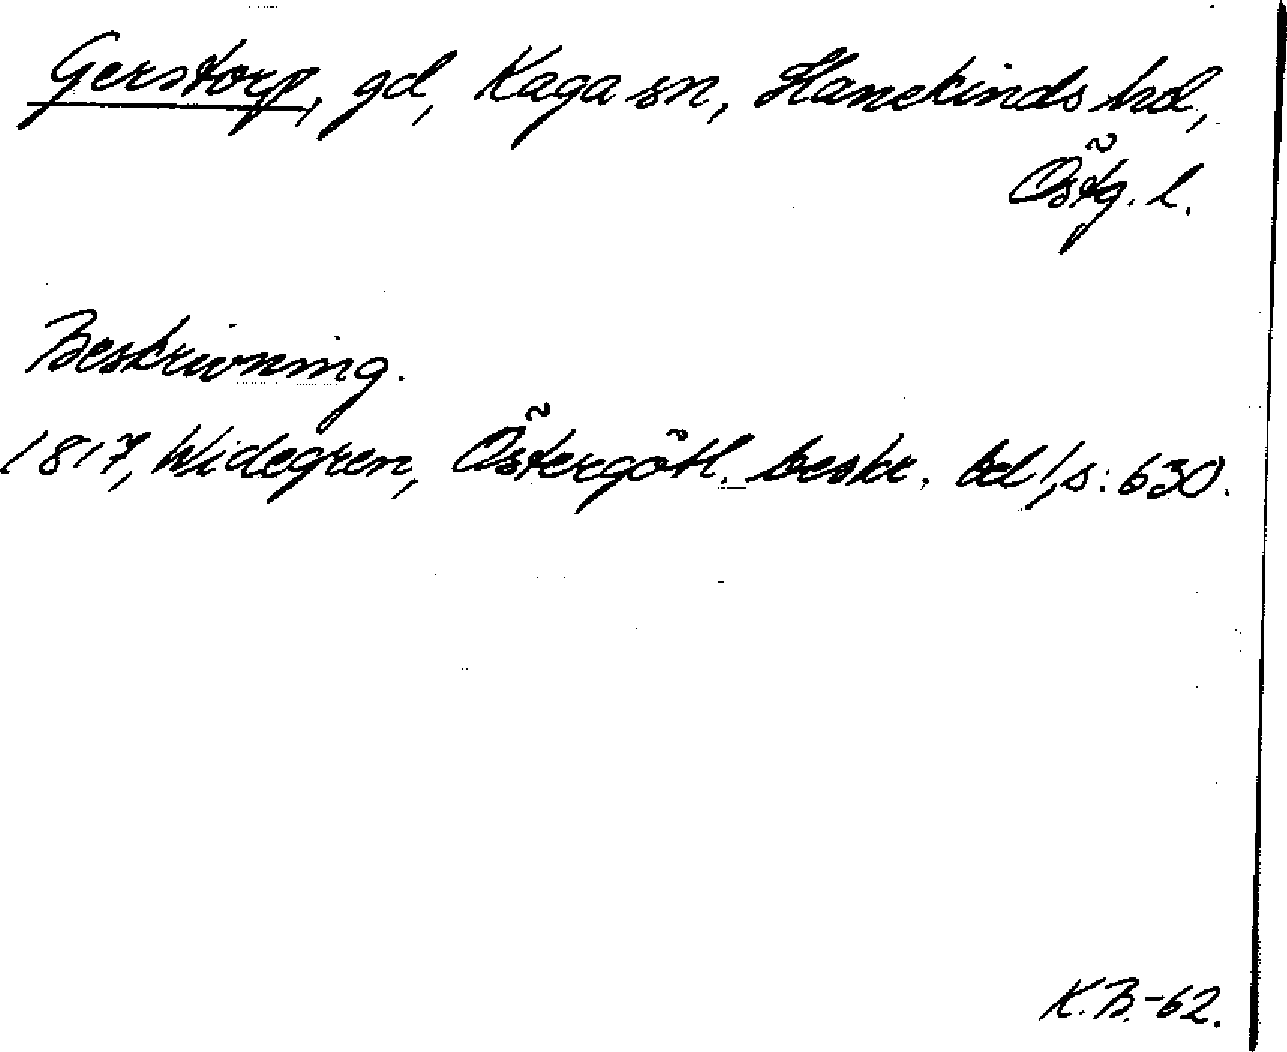 Gerstorp, gd, Kaga sn, Hanekinds hd,
Östg. l.
Beskrivning.
1817, Widegren, Östergötl. beskr. bd 1, s: 630.
K.B.-62.